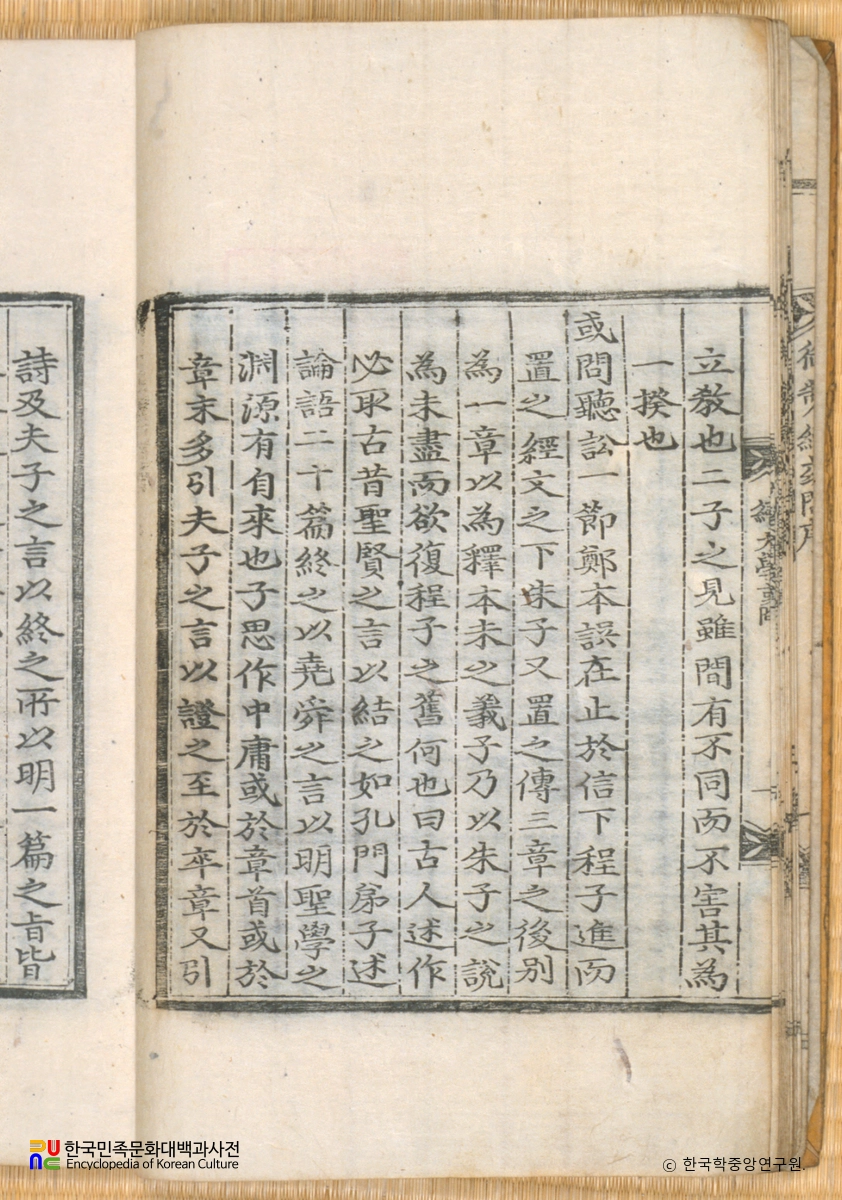 立敎也二子之見雖間有不同而不害其為
一揆也
或問聽訟一節鄭本誤在止於信下程子進而
置之經文之下朱子又置之傳三章之後別
為一章以為釋本末之義子乃以朱子之說
為未盡而欲復程子之舊何也曰古人述作
必取古昔聖賢之言以結之如孔門弟子述
論語二十篇終之以堯舜之言以明聖學之
淵源有自來也子思作中庸或於章首或於
章末多引夫子之言以證之至於卒章又引
詩及夫子之言以終之所以明一篇之旨皆
大學或問
한국민족문화대백과사전
Encyclopedia of Korean Culture
© 한국학중앙연구원